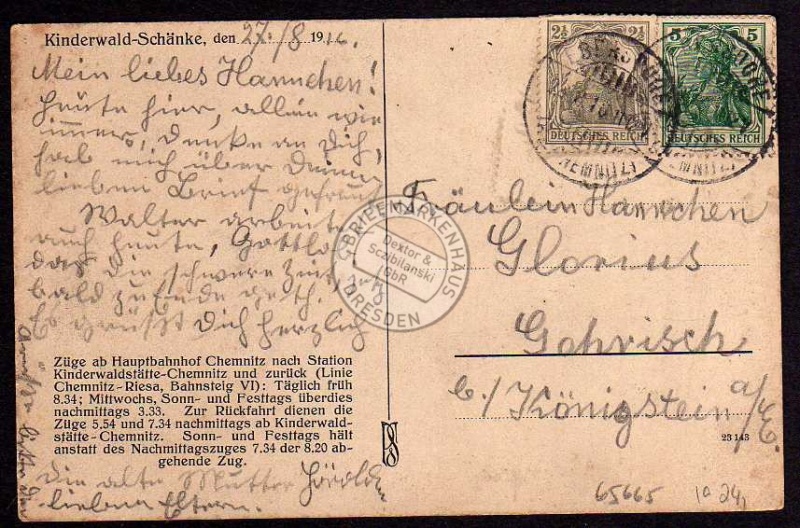 Kinderwald-Schänke, den 27./8 19
Mein liebes Hannchen!
Heute hier, allen wie
immer, Denke an Dich,
hab mich über Deinen
lieben Brief gefreut
Walter arbeitet
auch heute, Gottlob
das die schwere Zeit
bald zu Ende geht.
Es grüßt Dich herzlich
Züge ab Hauptbahnhof Chemnitz nach Station
Kinderwaldstätte-Chemnitz und zurück (Linie
Chemnitz-Riesa, Bahnsteig VI): Täglich früh
8.34; Mittwochs, Sonn- und Festtags überdies
nachmittags 3.33. Zur Rückfahrt dienen die
Züge 5.54 und 7.34 nachmittags ab Kinderwald-
stätte-Chemnitz. Sonn- und Festtags hält
anstatt des Nachmittagszuges 7.34 der 8.20 ab-
gehende Zug.
die alte Mutter
lieben Eltern.
2½ 2½
DEUTSCHES REICH
5 5
DEUTSCHES REICH
Fräulein Hannchen
Glorius
Gohrisch
b./ Königstein a/E.
23 143
65665
10 24,
BRIEFMARKENHAUS
Dextor &
Sczibilanski
GbR
DRESDEN